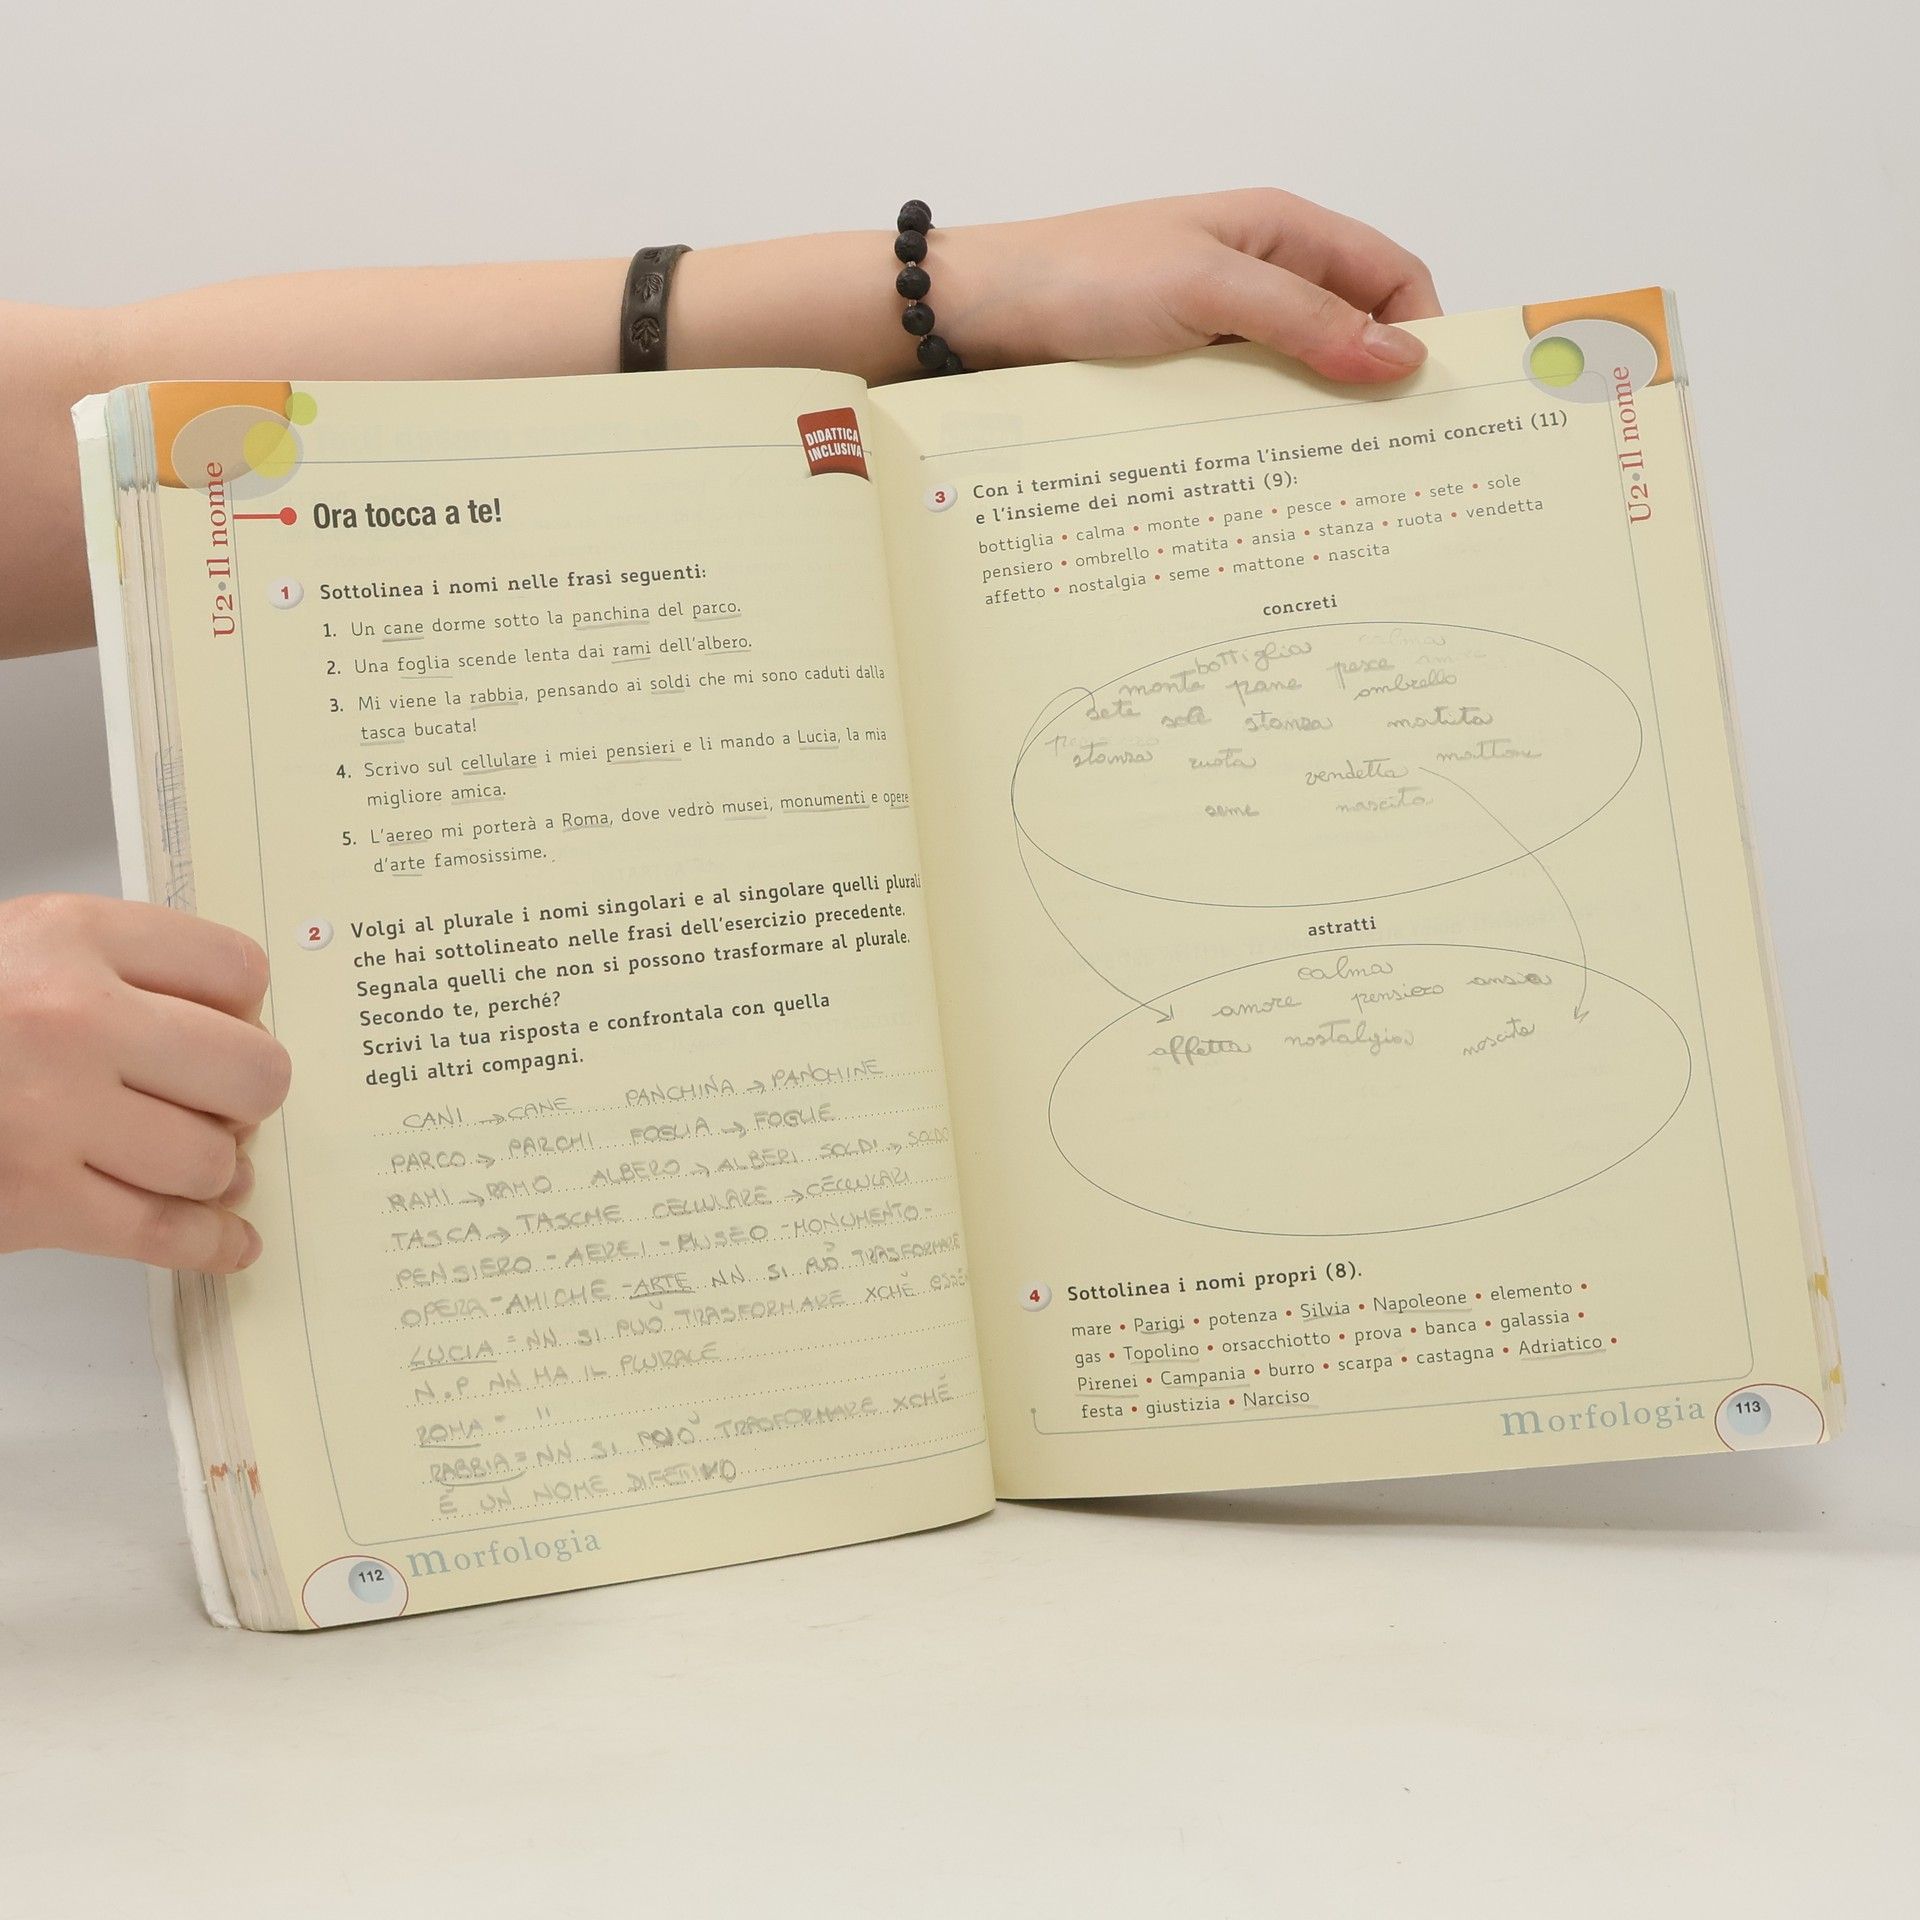 DIDATTICA
INCLUSIVA
U2•Il nome
Ora tocca a te!
1 Sottolinea i nomi nelle frasi seguenti:
1. Un cane dorme sotto la panchina del parco.
2. Una foglia scende lenta dai rami dell'albero.
3. Mi viene la rabbia, pensando ai soldi che mi sono caduti dalla
tasca bucata!
4. Scrivo sul cellulare i miei pensieri e li mando a Lucia, la mia
migliore amica.
5. L'aereo mi porterà a Roma, dove vedrò musei, monumenti e opere
d'arte famosissime.
2 Volgi al plurale i nomi singolari e al singolare quelli plurali
che hai sottolineato nelle frasi dell'esercizio precedente.
Segnala quelli che non si possono trasformare al plurale.
Secondo te, perché?
Scrivi la tua risposta e confrontala con quella
degli altri compagni.
CANI → CANE PANCHINA → PANCHINE
PARCO → PARCHI FOGLIA → FOGLIE
RAMI → RAMO ALBERO → ALBERI SOLDI → SOLDO
TASCA → TASCHE CELLULARE → CELLULARI
PENSIERO - AEREI - MUSEO - MONUMENTO -
OPERA - AMICHE - ARTE NN SI PUÒ TRASFORMARE
LUCIA = NN SI PUÒ TRASFORMARE XCHÉ
N.P NN HA IL PLURALE
ROMA = "
RABBIA = NN SI PUÒ TRASFORMARE XCHÉ
È UN NOME DIFETTIVO
112 Morfologia
U2•Il nome
3 Con i termini seguenti forma l'insieme dei nomi concreti (11)
e l'insieme dei nomi astratti (9):
bottiglia • calma • monte • pane • pesce • amore • sete • sole
pensiero • ombrello • matita • ansia • stanza • ruota • vendetta
affetto • nostalgia • seme • mattone • nascita
concreti
bottiglia calma
monte pane pesce amore
ombrello
sete sole stanza matita
stanza ruota vendetta mattone
seme nascita
astratti
calma
amore pensiero ansia
affetto nostalgia nascita
4 Sottolinea i nomi propri (8).
mare • Parigi • potenza • Silvia • Napoleone • elemento •
gas • Topolino • orsacchiotto • prova • banca • galassia •
Pirenei • Campania • burro • scarpa • castagna • Adriatico •
festa • giustizia • Narciso
Morfologia 113